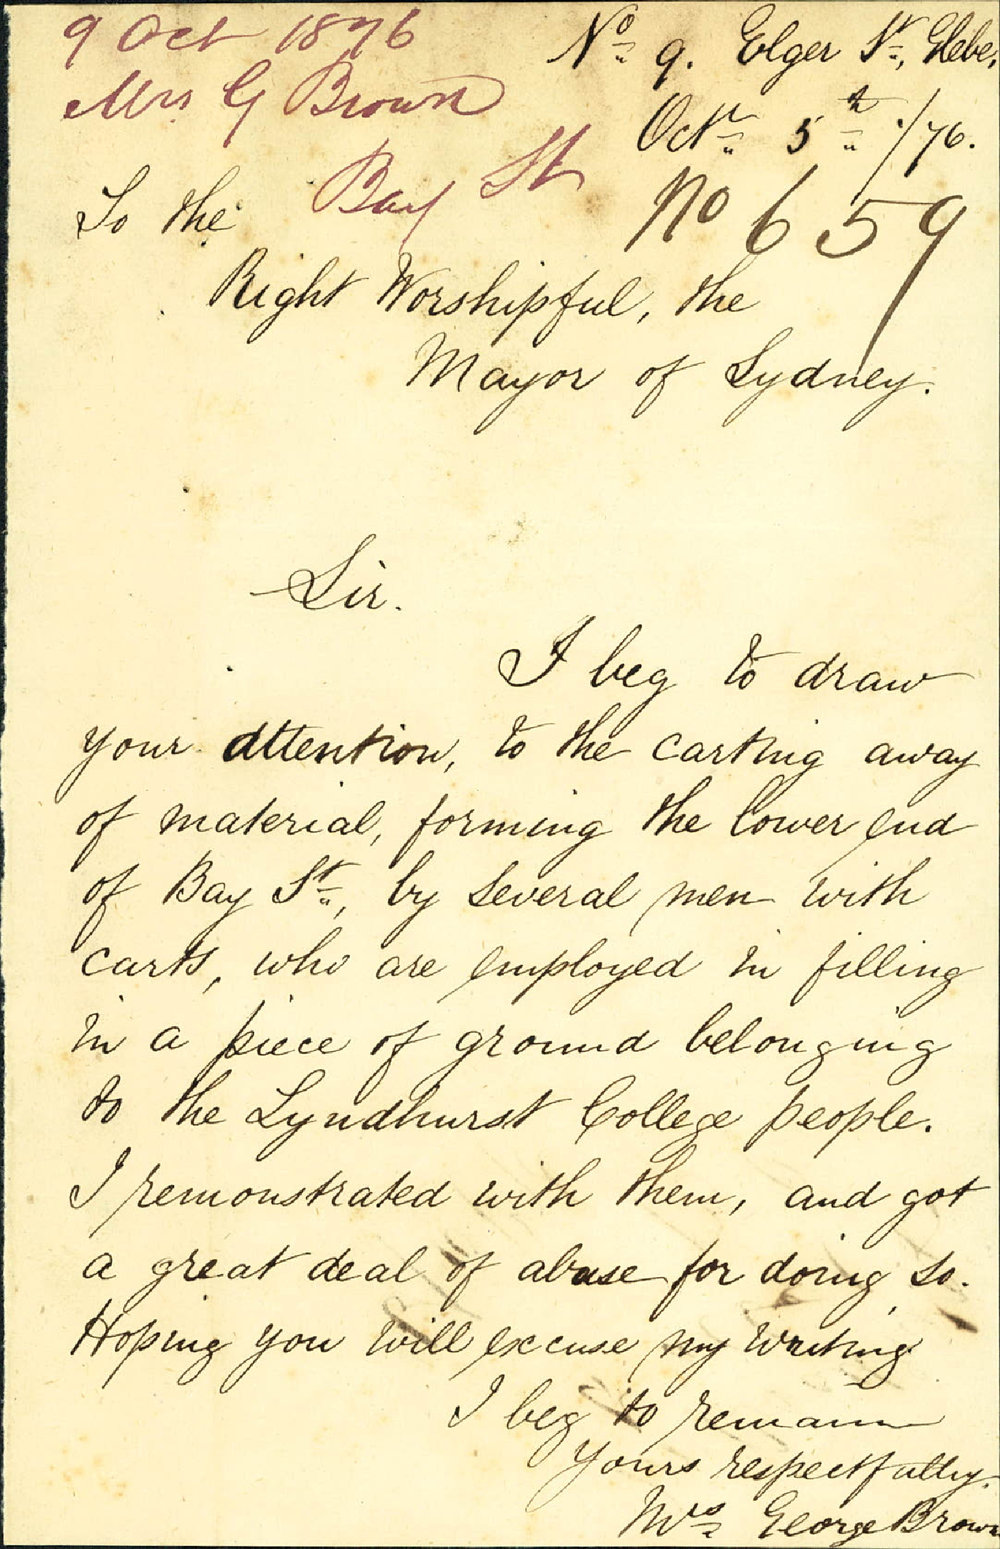 9 Oct 1876
Mrs G Brown
Bay St
No. 9. Elger St., Glebe.
Octr. 5th /76.
No 659
To the
Right Worshipful, the
Mayor of Sydney.
Sir.
I beg to draw
your attention, to the carting away
of material, forming the lower end
of Bay St., by several men with
carts, who are employed in filling
in a piece of ground belonging
to the Lyndhurst College people.
I remonstrated with them, and got
a great deal of abuse for doing so.
Hoping you will excuse my writing
I beg to remain
Yours respectfully.
Mrs. George Brown